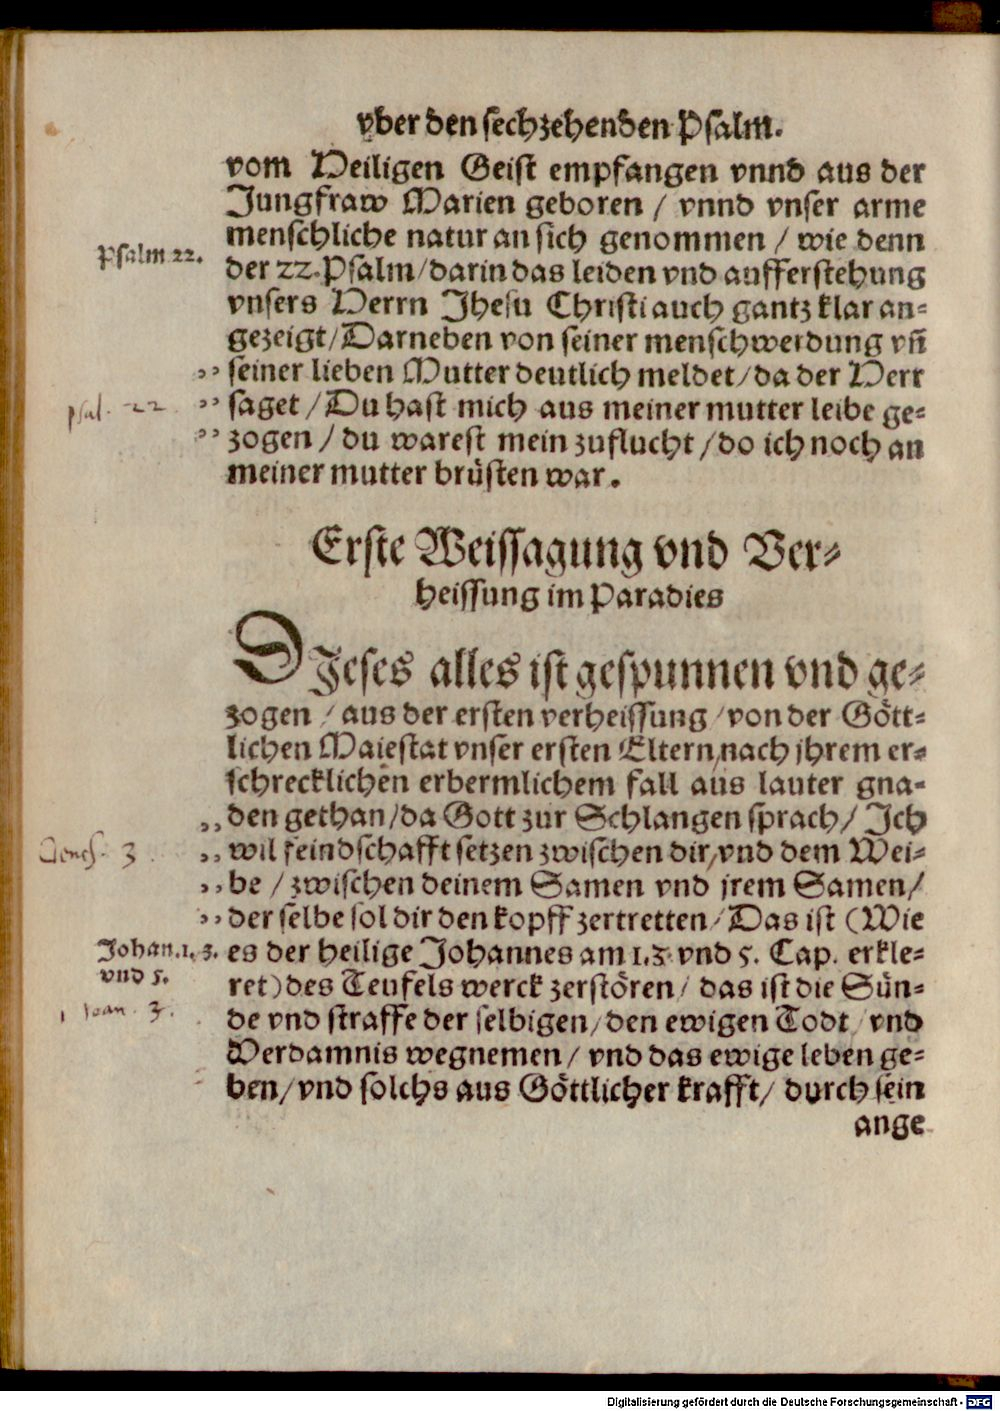 vber den sechzehenden Psalm.
vom Heiligen Geist empfangen vnnd aus der
Jungfraw Marien geboren / vnnd vnser arme
menschliche natur an sich genommen / wie denn
Psalm 22.
der 22. Psalm / darin das leiden vnd aufferstehung
vnsers Herrn Jhesu Christi auch gantz klar an=
gezeigt / Darneben von seiner menschwerdung vn̄
„ seiner lieben Mutter deutlich meldet / da der Herr
psal. 22
„ saget / Du hast mich aus meiner mutter leibe ge=
„ zogen / du warest mein zuflucht / do ich noch an
meiner mutter brüsten war.
Erste Weissagung vnd Ver=
heissung im Paradies
DJeses alles ist gespunnen vnd ge=
zogen / aus der ersten verheissung / von der Gött=
lichen Maiestat vnser ersten Eltern, nach jhrem er=
schrecklichen erbermlichem fall aus lauter gna=
„ den gethan / da Gott zur Schlangen sprach / Ich
Genes. 3
„ wil feindschafft setzen zwischen dir, vnd dem Wei=
„ be / zwischen deinem Samen vnd jrem Samen /
„ der selbe sol dir den kopff zertretten / Das ist (Wie
Johan. 1. 3.
vnd 5.
es der heilige Johannes am 1. 3. vnd 5. Cap. erkle=
ret) des Teufels werck zerstören / das ist die Sün=
1 Joan. 3.
de vnd straffe der selbigen / den ewigen Todt / vnd
Verdamnis wegnemen / vnd das ewige leben ge=
ben / vnd solchs aus Göttlicher krafft / durch sein
ange
Digitalisierung gefördert durch die Deutsche Forschungsgemeinschaft - DFG